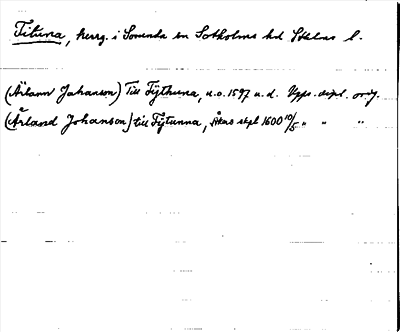 Tituna, herrg. i Sorunda sn Sotholms hd Sthlms l.
(Ärlann Johanson) Till Tÿthuna, u.o. 1597 u.d. Upps. dipl. orig.
(Årland Johanson) till Tÿtunna, Åkas stpl 1600 10/5 " " "